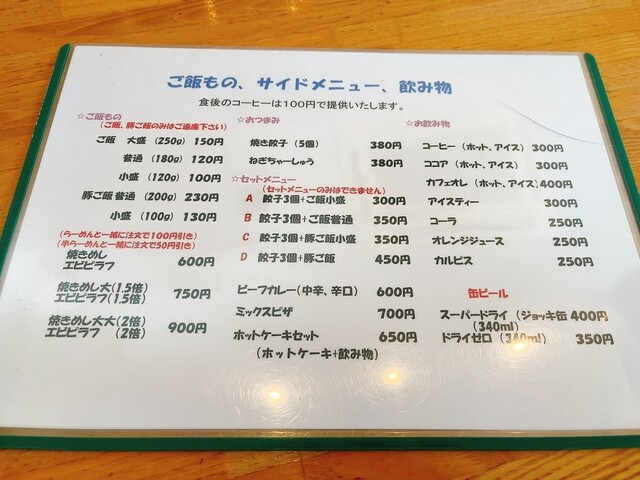 ご飯もの、サイドメニュー、飲み物
食後のコーヒーは100円で提供いたします。
☆ご飯もの
(ご飯、豚ご飯のみはご遠慮下さい)
ご飯 大盛 (250g) 150円
普通 (180g) 120円
小盛 (120g) 100円
豚ご飯 普通 (200g) 230円
小盛 (100g) 130円
(らーめんと一緒に注文で100円引き)
(半らーめんと一緒に注文で50円引き)
焼きめし
エビピラフ 600円
焼きめし大 (1.5倍)
エビピラフ (1.5倍) 750円
焼きめし大大 (2倍)
エビピラフ (2倍) 900円
☆おつまみ
焼き餃子 (5個) 380円
ねぎちゃーしゅう 380円
☆セットメニュー
(セットメニューのみはできません)
A 餃子3個+ご飯小盛 300円
B 餃子3個+ご飯普通 350円
C 餃子3個+豚ご飯小盛 350円
D 餃子3個+豚ご飯 450円
ビーフカレー (中辛、辛口) 600円
ミックスピザ 700円
ホットケーキセット 650円
(ホットケーキ+飲み物)
☆お飲み物
コーヒー (ホット、アイス) 300円
ココア (ホット、アイス) 300円
カフェオレ (ホット、アイス) 400円
アイスティー 300円
コーラ 250円
オレンジジュース 250円
カルピス 250円
缶ビール
スーパードライ (ジョッキ缶 400円
(340ml)
ドライゼロ (340ml) 350円